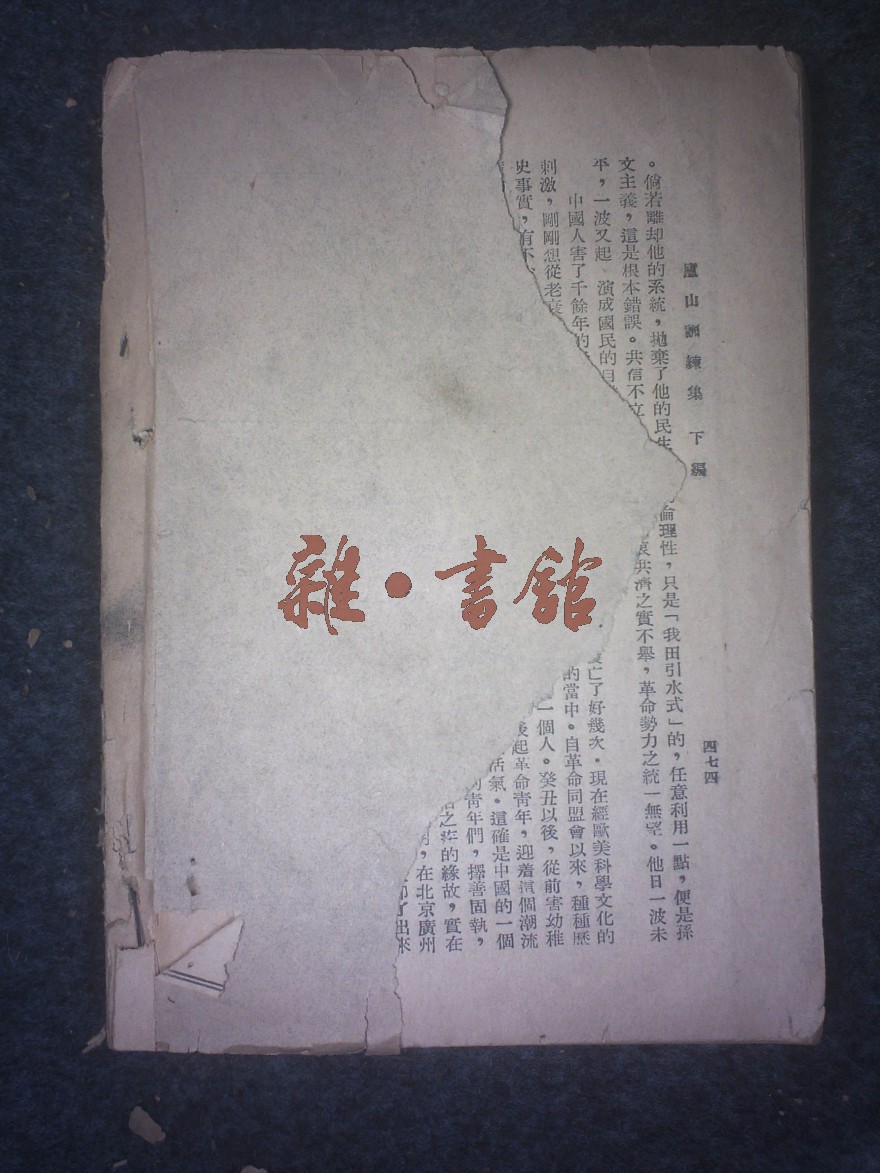 廬山訓練集　下編
四七四
。倘若離却他的系統，拋棄了他的民生
倫理性，只是「我田引水式」的，任意利用一點，便是孫
文主義，這是根本錯誤。共信不立
共濟之實不舉，革命勢力之統一無望。他日一波未
平，一波又起 演成國民的自
中國人害了千餘年的
亡了好幾次．現在經歐美科學文化的
刺激，剛剛想從老衰
的當中。自革命同盟會以來，種種歷
史事實，有不
一個人。癸丑以後，從前害幼稚
後起革命青年，迎着這個潮流
活氣。這確是中國的一個
青年們，擇善固執，
之症的緣故，實在
，在北京廣州
了出來
雜·書館